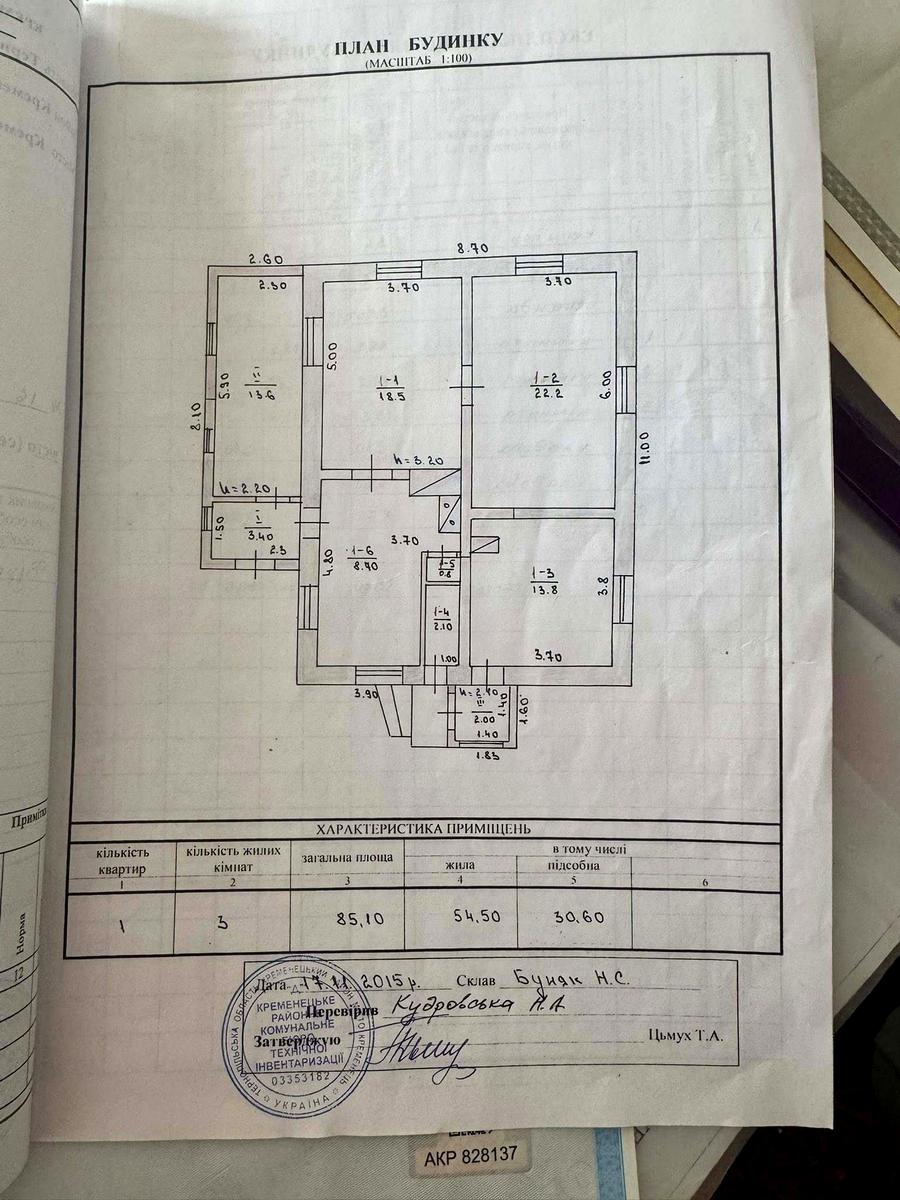 ПЛАН БУДИНКУ
(МАСШТАБ 1:100)
2.60
8.70
2.30
3.70
3.70
5.90
II
13.6
5.00
1-1
18.5
1-2
22.2
6.00
8.10
11.00
h=2.20
h=3.20
1.50
I
3.40
2.3
3.70
4.80
1-6
8.70
1-5
0.8
1-3
13.8
3.8
1-4
2.10
1.00
3.70
3.90
h=2.40
III
2.00
1.40
1.40
1.60
1.83
ХАРАКТЕРИСТИКА ПРИМІЩЕНЬ
кількість квартир
кількість жилих кімнат
загальна площа
в тому числі
жила
підсобна
1 2 3 4 5 6
1 3 85,10 54,50 30,60
Дата 17.11.2015р. Склав Буняк Н.С.
Перевірив Кудровська Л.А
Затверджую Цьмух Т.А.
КРЕМЕНЕЦЬКЕ
РАЙОННЕ
КОМУНАЛЬНЕ
БЮРО
ТЕХНІЧНОЇ
ІНВЕНТАРИЗАЦІЇ
03353182
УКРАЇНА
Примітк
Норма
12
АКР 828137